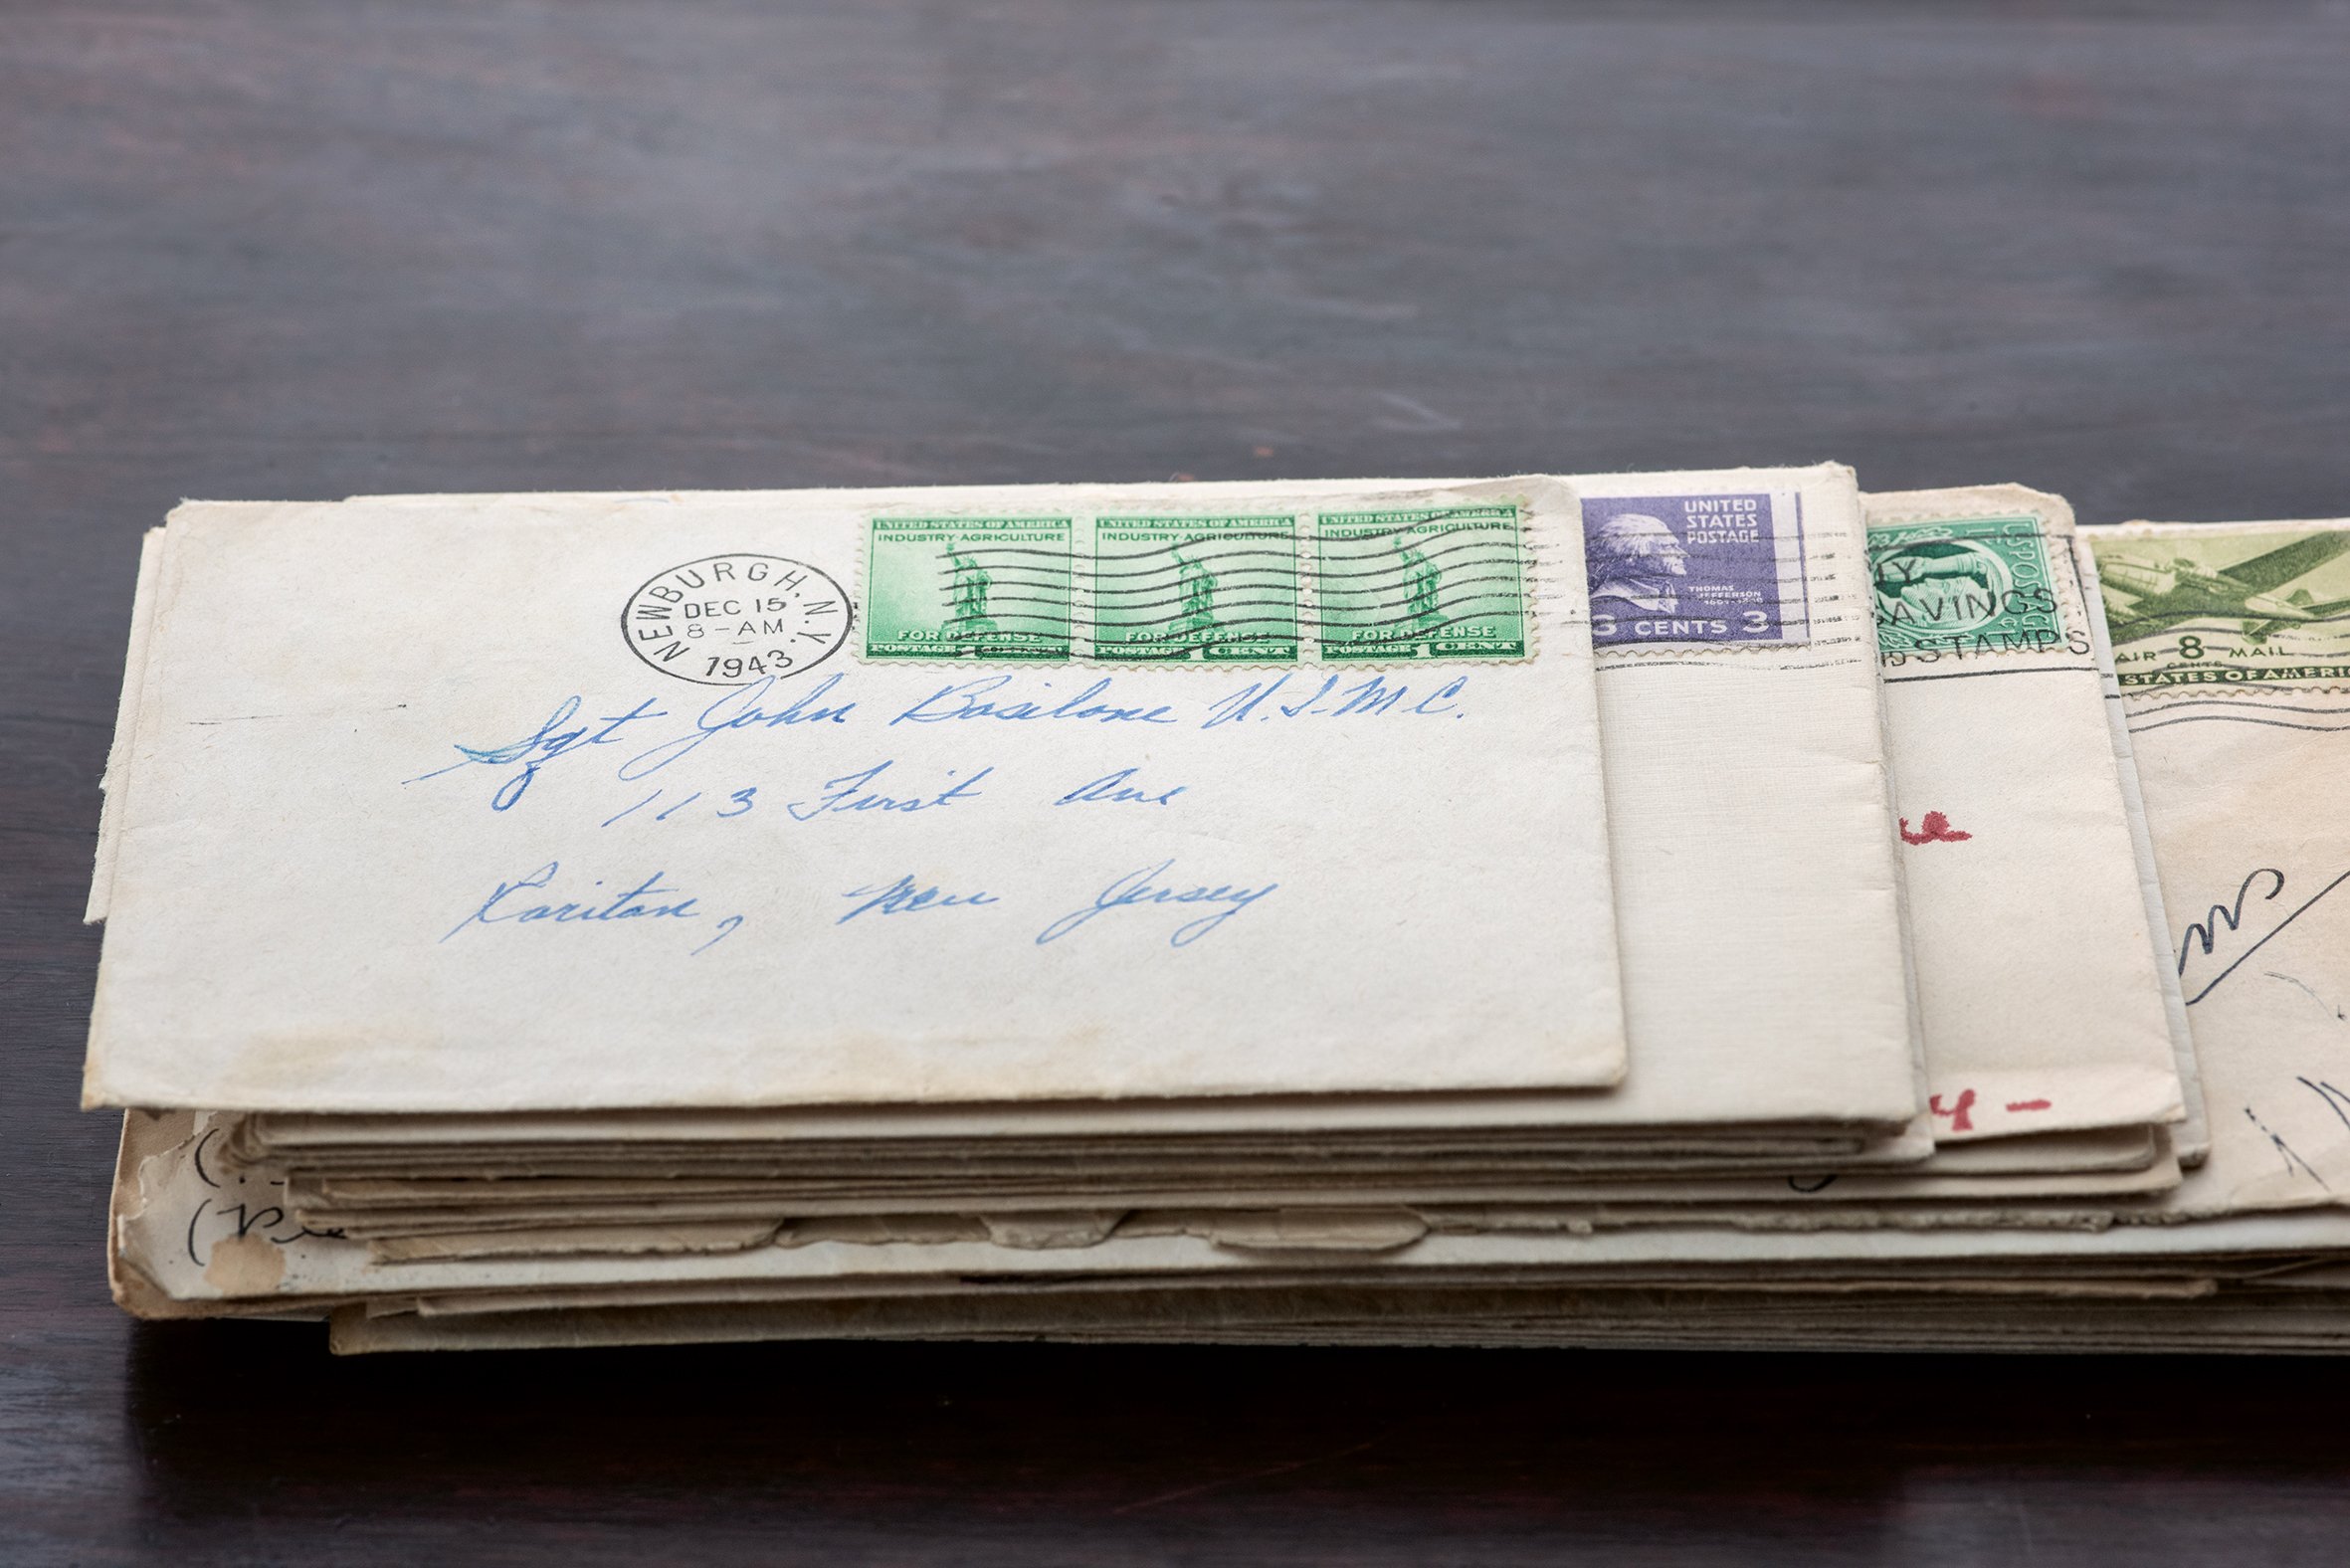 NEWBURGH, N.Y.
DEC 15
8-AM
1943
UNITED STATES OF AMERICA
INDUSTRY AGRICULTURE
FOR DEFENSE
POSTAGE 1 CENT
UNITED STATES OF AMERICA
INDUSTRY AGRICULTURE
FOR DEFENSE
POSTAGE 1 CENT
UNITED STATES OF AMERICA
INDUSTRY AGRICULTURE
FOR DEFENSE
POSTAGE 1 CENT
UNITED
STATES
POSTAGE
THOMAS
JEFFERSON
3 CENTS 3
SAVINGS
STAMPS
AIR 8 MAIL
CENTS
STATES OF AMERI
Sgt John Basilone U.S.M.C.
113 First Ave
Raritan, New Jersey